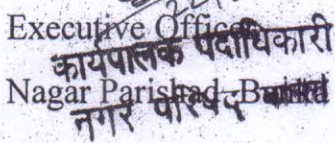 Executive Officer
कार्यपालक पदाधिकारी
Nagar Parishad
नगर परिषद